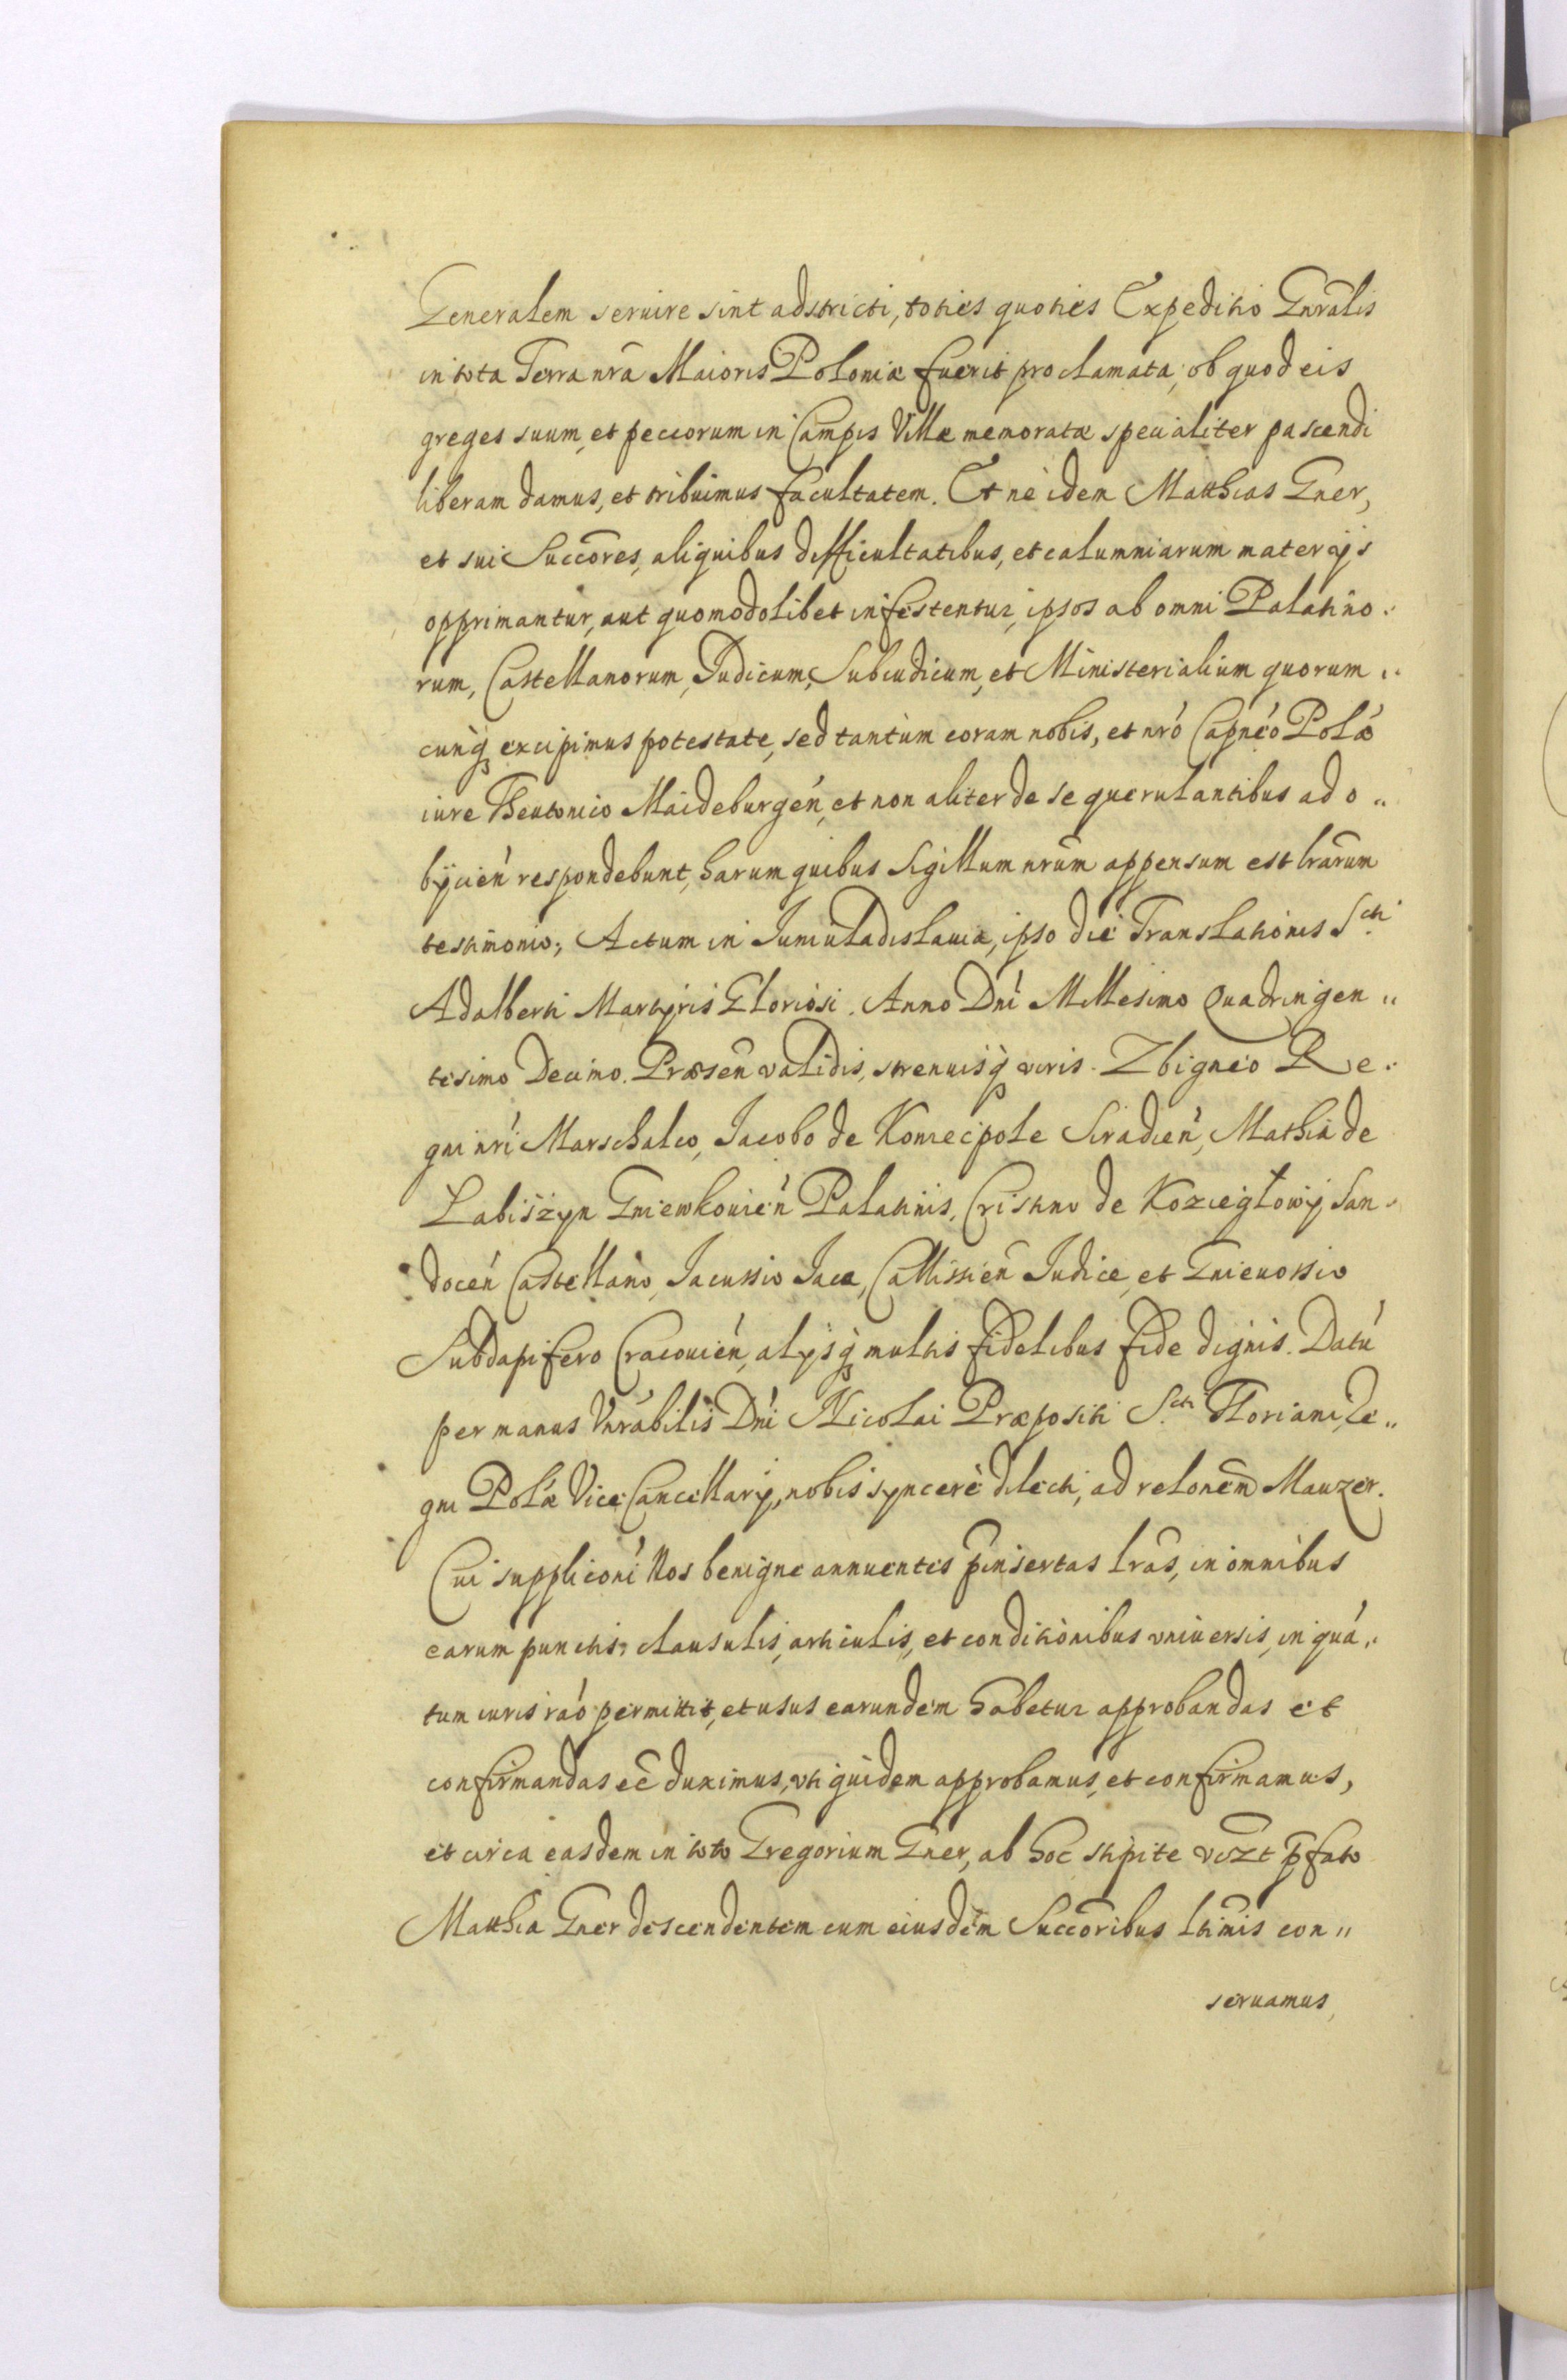 Generalem seruire sint adstricti, toties quoties Expeditio Gnralis
in tota Terra nra Maioris Poloniæ fuerit proclamata, ob quod eis
greges suum, et peccorum in Campis Villæ memoratæ specialiter pascendi
liberam damus, et tribuimus facultatem. Et ne idem Matthias Gner,
et sui Succores, aliquibus difficultatibus, et calumniarum materijs
opprimantur, aut quomodolibet infestentur, ipsos ab omni Palatino„
rum, Castellanorum, Judicum, Subiudicum, et Ministerialium quorum„
cunq excipimus potestate, sed tantùm coram nobis, et nró Capnéo Polæ
iure Theutonico Maideburgén, et non aliter de se querulantibus ad o„
bÿcién respondebunt, harum quibus Sigillum nrũm appensum est lrarum
testimonio; Actum in Juniuladislauia, ipso die Translationis S.cti
Adalberti Martyris Gloriosi. Anno Dni Millesimo Quadringen„
tesimo Decimo. Præsen validis, strenuisq viris. Zbigneo Re„
gni nri Marschalco, Jacobo de Koniecpole Siradien, Mathia de
Labiszyn Gniewkouién Palatinis, Cristino de Koziegłowÿ San„
docén Castellano, Jacussio Jaca, Callissien Judice, et Gnieuossio
Subdapifero Cracouién, alÿsq multis fidelibus fide dignis. Datú
per manus Vnrabilis Dni Nicolai Præpositi S.cti Floriani, Re„
gni Polæ Vice Cancellarÿ, nobis syncerè dilecti, ad relonem Mauzer.
Cui supplicóni Nos benigne annuentes pinsertas lras, in omnibus
earum punctis, clausulis, articulis, et conditionibus vniuersis, in quá„
tum iuris raó permittit, et usus earundem habetur approbandas et
confirmandas eē duximus, vti quidem approbamus, et confirmamus,
et circa easdem in toto Gregorium Gner, ab hoc stipite vczt pfato
Matthia Gner descendentem cum eiusdem Succoribus ltimis con„
seruamus,